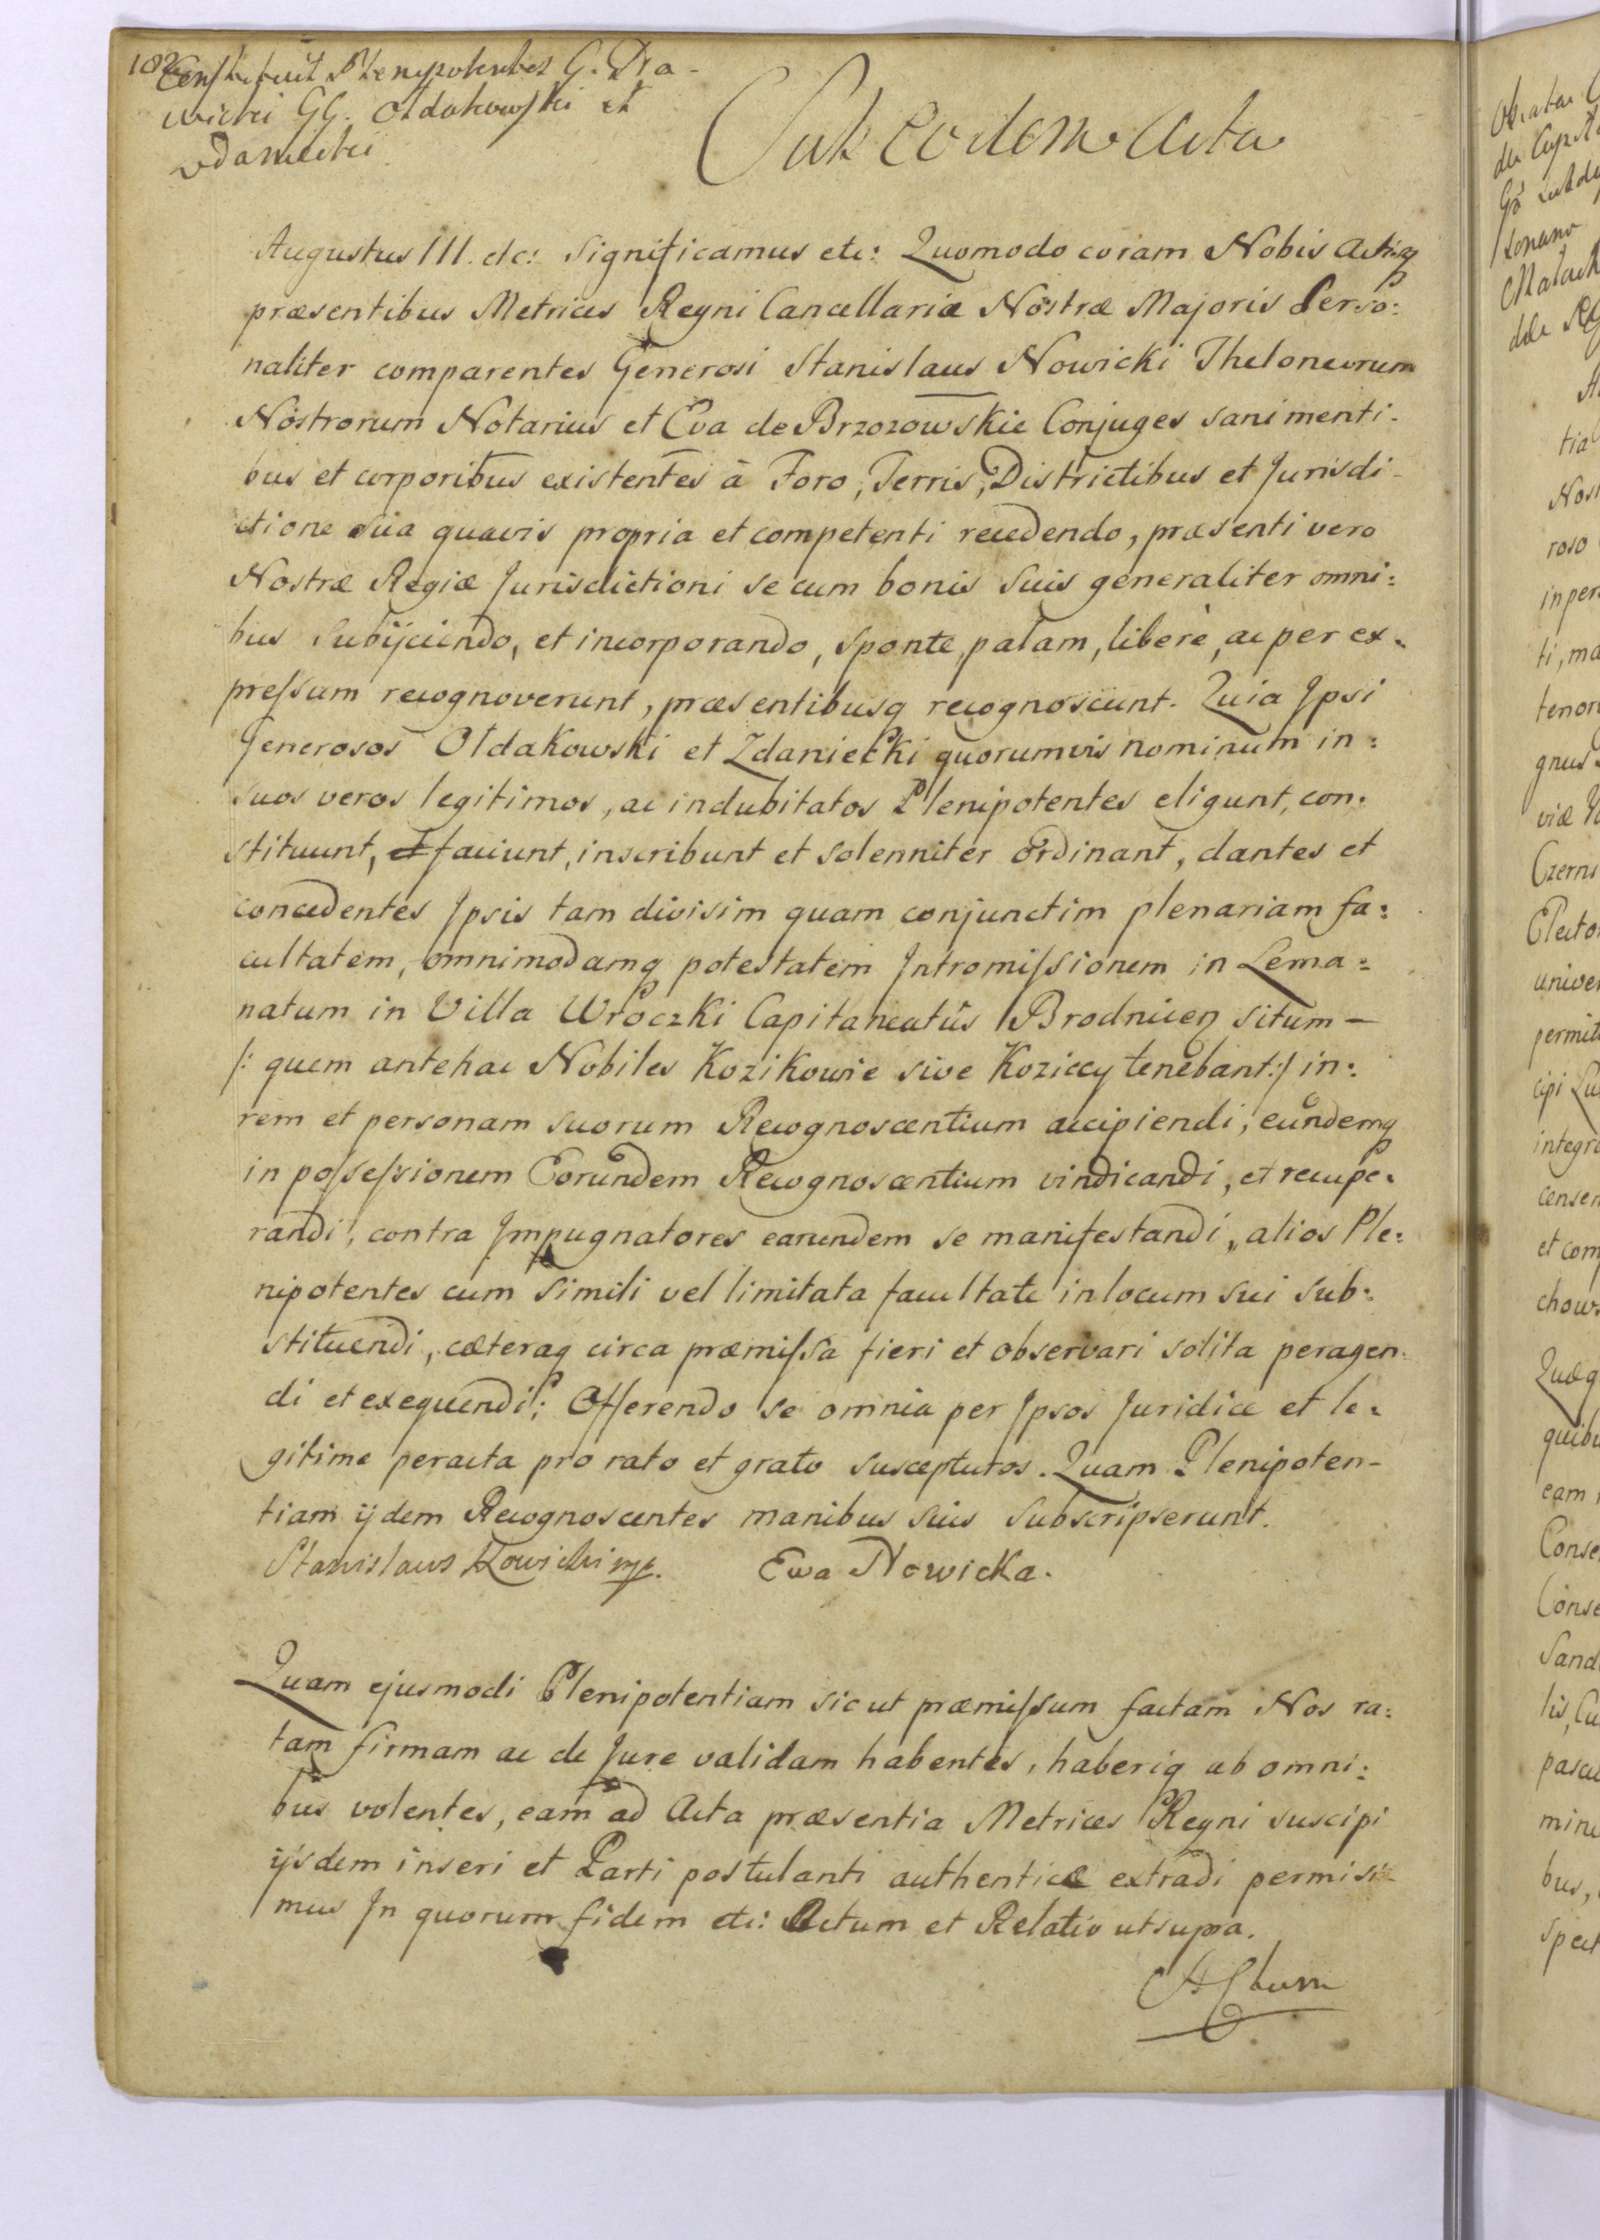 182
Constituit Plenipotentes G.
wicki GG. Oldakowski et
Zdaniecki
Sub eodem Acta
Augustus III. etc: Significamus etc: Quomodo coram Nobis Actisq
præsentibus Metrices Regni Cancellariæ Nostræ Majoris Perso:
naliter comparentes Generosi Stanislaus Nowicki Theloneorum
Nostrorum Notarius et Eva de Brzozowskie Conjuges sani menti-
bus et corporibus existentes à Foro, Terris, Districtibus et Jurisdi-
ctione sua quavis propria et competenti recedendo, præsenti vero
Nostræ Regiæ Jurisdictioni se cum bonis suis generaliter omni:
bus subijciendo, et incorporando, sponte, palam, liberè, ac per ex-
pressum recognoverunt, præsentibusq recognoscunt. Quia Ipsi
Generosos Oldakowski et Zdaniecki quorumvis nominum in:
suos veros legitimos, ac indubitatos Plenipotentes eligunt, con:
stituunt, et faciunt, inscribunt et solenniter ordinant, dantes et
concedentes Ipsis tam divisim quam conjunctim plenariam fa:
cultatem, omnimodamq potestatem Intromissionem in Lema:
natum in Villa Wroczki Capitaneatûs Brodnicen situm —
/: quem antehac Nobiles Kozikowie sive Koziccy tenebant :/ in:
rem et personam suorum Recognoscentium accipiendi, eundemq
in possessionem Eorundem Recognoscentium vindicandi, et recupe:
randi, contra Impugnatores earundem se manifestandi, alios Ple:
nipotentes cum simili vel limitata facultate in locum sui sub:
stituendi, cæteraq circa præmissa fieri et observari solita peragen-
di et exequendi; Offerendo se omnia per Ipsos Juridice et le:
gitime peracta pro rato et grato suscepturos. Quam Plenipoten-
tiam ijdem Recognoscentes manibus suis subscripserunt.
Stanislaus Nowicki mp. Ewa Nowicka.
Quam ejusmodi Plenipotentiam sic ut præmissum factam Nos ra:
tam firmam ac de Jure validam habentes, haberiq ab omni:
bus volentes, eam ad Acta præsentia Metrices Regni suscipi
ijsdem inseri et Parti postulanti authenticæ extradi permisi-
mus In quorum fidem etc: Actum et Relatio ut supra.